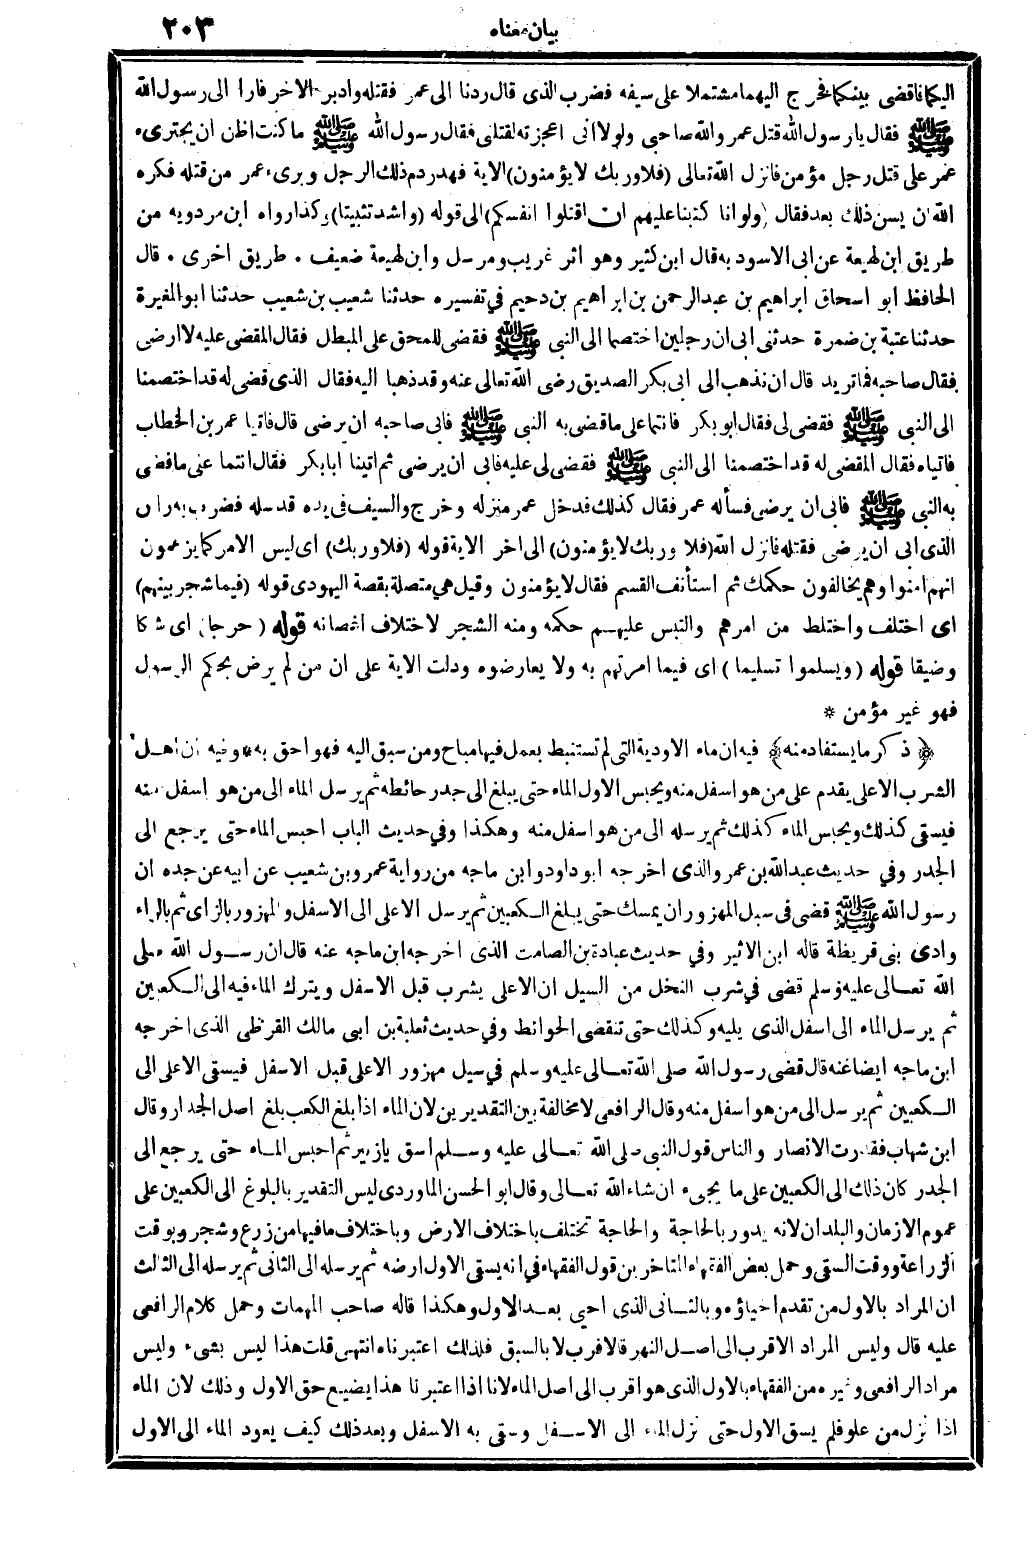 بيان معناه ٢٠٣
اليكما فاقضى بينكما فخرج اليهما مشتملا على سيفه فضرب الذى قال ردنا الى عمر فقتله وادبر الاخر فارا الى رسول الله
ﷺ فقال يا رسول الله قتل عمر والله صاحبى ولولا انى اعجزته لقتلنى فقال رسول الله ﷺ ما كنت اظن ان يجترىء
عمر على قتل رجل مؤمن فانزل الله تعالى (فلا وربك لا يؤمنون) الاية فهدر دم ذلك الرجل وبرىء عمر من قتله فكره
الله ان يسن ذلك بعد فقال (ولو انا كتبنا عليهم ان اقتلوا انفسكم) الى قوله (واشد تثبيتا) وكذا رواه ابن مردويه من
طريق ابن لهيعة عن ابى الاسود به قال ابن كثير وهو اثر غريب ومرسل وابن لهيعة ضعيف . طريق اخرى . قال
الحافظ ابو اسحاق ابراهيم بن عبد الرحمن بن ابراهيم بن دحيم في تفسيره حدثنا شعيب بن شعيب حدثنا ابو المغيرة
حدثنا عتبة بن ضمرة حدثنى ابى ان رجلين اختصما الى النبى ﷺ فقضى للمحق على المبطل فقال المقضى عليه لا ارضى
فقال صاحبه فما تريد قال ان نذهب الى ابى بكر الصديق رضى الله تعالى عنه وقد ذهبا اليه فقال الذى قضى له قد اختصمنا
الى النبى ﷺ فقضى لى فقال ابو بكر فانتما على ما قضى به النبى ﷺ فابى صاحبه ان يرضى قال فاتيا عمر بن الخطاب
فاتياه فقال المقضى له قد اختصمنا الى النبى ﷺ فقضى لى عليه فابى ان يرضى ثم اتينا ابا بكر فقال انتما على ما قضى
به النبى ﷺ فابى ان يرضى فسأله عمر فقال كذلك فدخل عمر منزله وخرج والسيف فى يده قد سله فضرب به راس
الذى ابى ان يرضى فقتله فانزل الله (فلا وربك لا يؤمنون) الى اخر الاية قوله (فلا وربك) اى ليس الامر كما يزعمون
انهم امنوا وهم يخالفون حكمك ثم استأنف القسم فقال لا يؤمنون وقيل هى متصلة بقصة اليهودى قوله (فيما شجر بينهم)
اى اختلف واختلط من امرهم والتبس عليهم حكمه ومنه الشجر لاختلاف اغصانه قوله (حرجا) اى شكا
وضيقا قوله (ويسلموا تسليما) اى فيما امرتهم به ولا يعارضوه ودلت الاية على ان من لم يرض بحكم الرسول
فهو غير مؤمن *
﴿ذكر ما يستفاد منه﴾ فيه ان ماء الاودية التى لم تستنبط بعمل فيها مباح ومن سبق اليه فهو احق به * وفيه ان اهل
الشرب الاعلى يقدم على من هو اسفل منه ويحبس الاول الماء حتى يبلغ الى جدر حائطه ثم يرسل الماء الى من هو اسفل منه
فيسقى كذلك ويحبس الماء كذلك ثم يرسله الى من هو اسفل منه وهكذا وفي حديث الباب احبس الماء حتى يرجع الى
الجدر وفي حديث عبد الله بن عمر والذى اخرجه ابو داود وابن ماجه من رواية عمرو بن شعيب عن ابيه عن جده ان
رسول الله ﷺ قضى فى سيل المهزور ان يمسك حتى يبلغ الكعبين ثم يرسل الاعلى الى الاسفل والمهزور بالزاى ثم بالراء
وادى بنى قريظة قاله ابن الاثير وفي حديث عبادة بن الصامت الذى اخرجه ابن ماجه عنه قال ان رسول الله صلى
الله تعالى عليه وسلم قضى في شرب النخل من السيل ان الاعلى يشرب قبل الاسفل ويترك الماء فيه الى الكعبين
ثم يرسل الماء الى اسفل الذى يليه وكذلك حتى تنقضى الحوائط وفي حديث ثعلبة بن ابى مالك القرظى الذى اخرجه
ابن ماجه ايضا عنه قال قضى رسول الله صلى الله تعالى عليه وسلم في سيل مهزور الاعلى قبل الاسفل فيسقى الاعلى الى
الكعبين ثم يرسل الى من هو اسفل منه وقال الرافعى لا مخالفة بين التقديرين لان الماء اذا بلغ الكعب بلغ اصل الجدار وقال
ابن شهاب فقدرت الانصار والناس قول النبى صلى الله تعالى عليه وسلم اسق يا زبير ثم احبس الماء حتى يرجع الى
الجدر كان ذلك الى الكعبين على ما يجىء ان شاء الله تعالى وقال ابو الحسن الماوردى ليس التقدير بالبلوغ الى الكعبين على
عموم الازمان والبلدان لانه يدور بالحاجة والحاجة تختلف باختلاف الارض وباختلاف ما فيها من زرع وشجر وبوقت
الزراعة ووقت السقى وحمل بعض الفقهاء المتاخرين قول الفقهاء في انه يسقى الاول ارضه ثم يرسله الى الثانى ثم يرسله الى الثالث
ان المراد بالاول من تقدم احياؤه وبالثانى الذى احيى بعد الاول وهكذا قاله صاحب المهمات وحمل كلام الرافعى
عليه قال وليس المراد الاقرب الى اصل النهر فالاقرب لا بالسبق فلذلك اعتبرناه انتهى قلت هذا ليس بشىء وليس
مراد الرافعى وغيره من الفقهاء بالاول الذى هو اقرب الى اصل الماء لانا اذا اعتبرنا هذا يضيع حق الاول وذلك لان الماء
اذا نزل من علو فلم يسق الاول حتى نزل الماء الى الاسفل وسقى به الاسفل وبعد ذلك كيف يعود الماء الى الاول